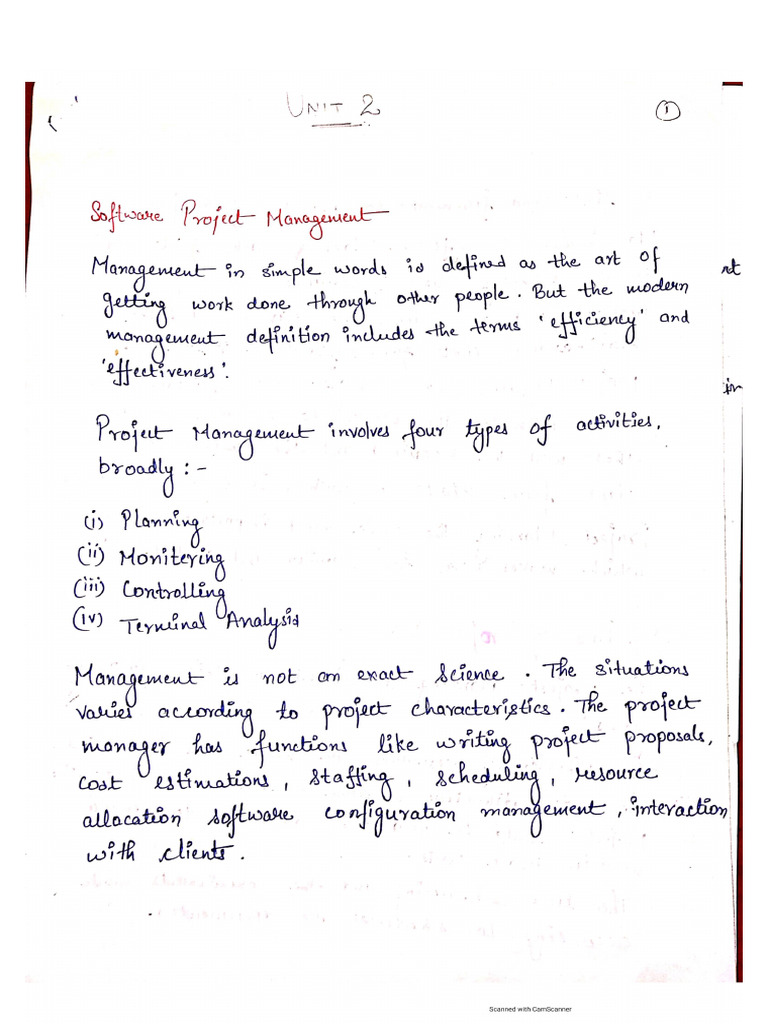 UNIT 2
1
Software Project Management
Management in simple words is defined as the art of
getting work done through other people. But the modern
management definition includes the terms 'efficiency' and
'effectiveness'.
Project Management involves four types of activities,
broadly :-
(i) Planning
(ii) Monitering
(iii) Controlling
(iv) Terminal Analysis
Management is not an exact science. The situations
varies according to project characteristics. The project
manager has functions like writing project proposals,
cost estimations, staffing, scheduling, resource
allacation software configuration management, interaction
with clients.
Scanned with CamScanner